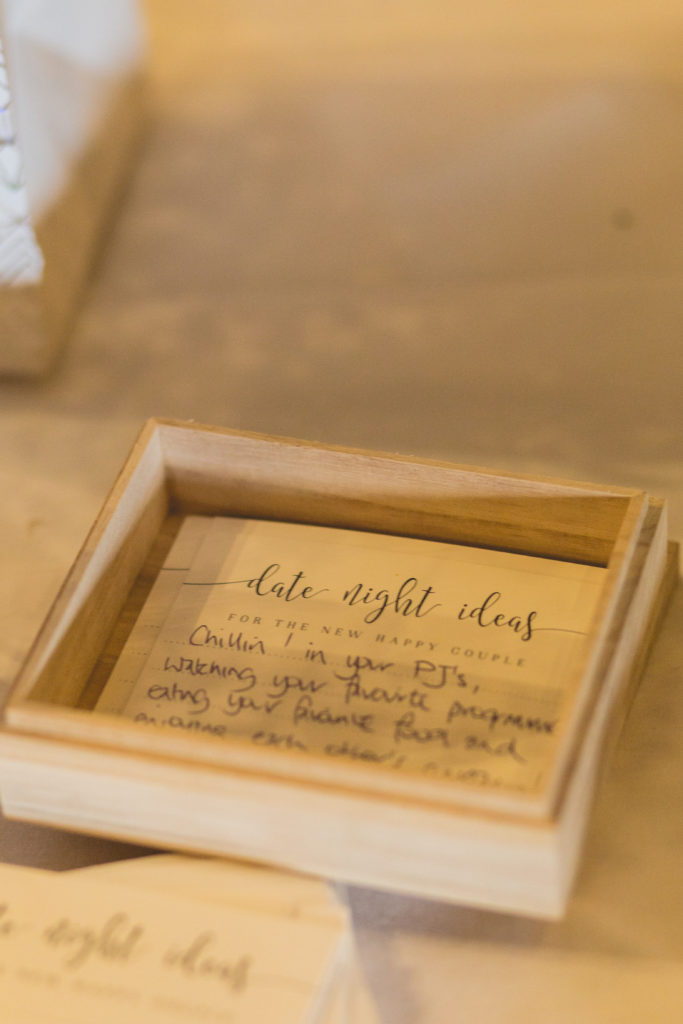 date night ideas
FOR THE NEW HAPPY COUPLE
Chillin' in your PJ's,
watching your favourite programme
eating your favourite food and
each other's
night ideas